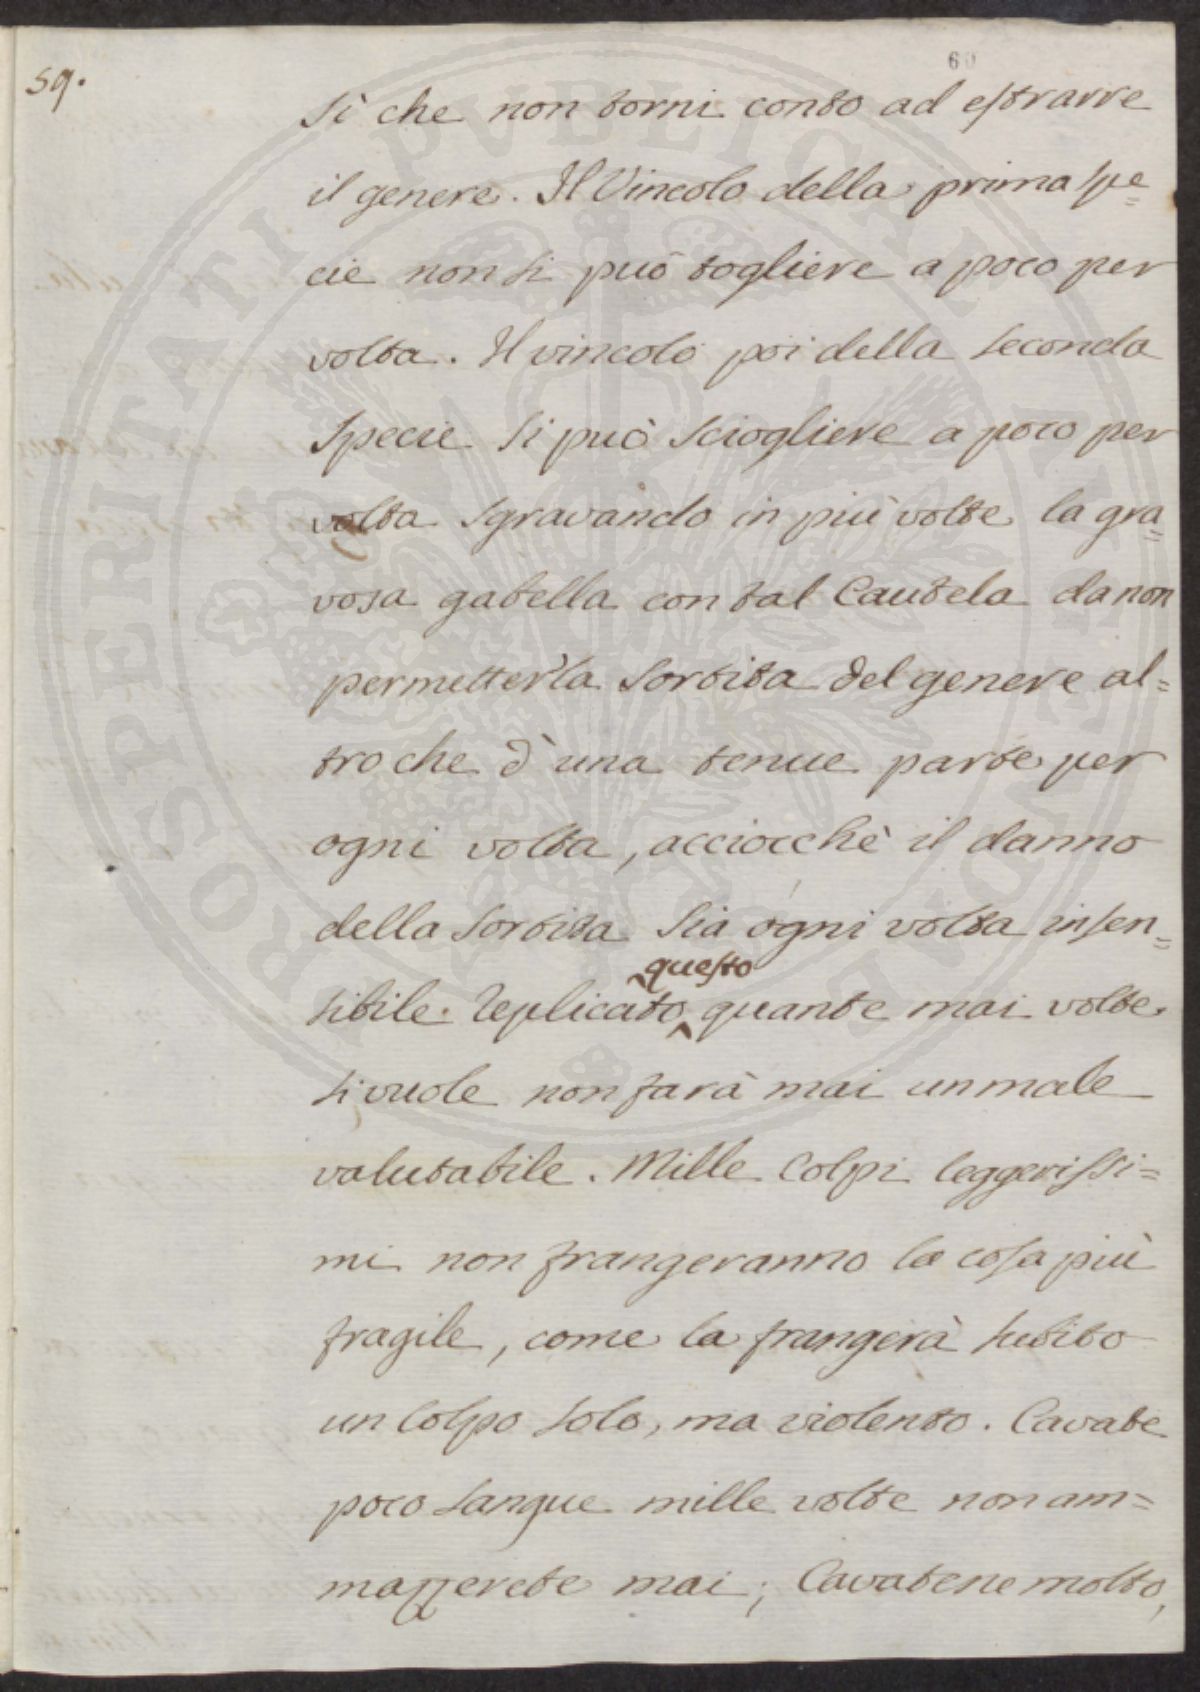 59.
60
sì che non torni conto ad estrarre
il genere. Il Vincolo della prima spe=
cie non si può togliere a poco per
volta. Il vincolo poi della seconda
specie si può sciogliere a poco per
volta sgravando in più volte la gra=
vosa gabella con tal cautela da non
permetter la sortita del genere al=
tro che d'una tenue parte per
ogni volta, acciocchè il danno
della sortita sia ogni volta insen=
questo
sibile. Replicato quante mai volte
si vuole non farà mai un male
valutabile. Mille colpi leggerissi=
mi non frangeranno la cosa più
fragile, come la frangerà subito
un colpo solo, ma violento. Cavate
poco sangue mille volte non am=
mazzerete mai; Cavatene molto,
PROSPERITATI PVBLICAE AVGENDAE